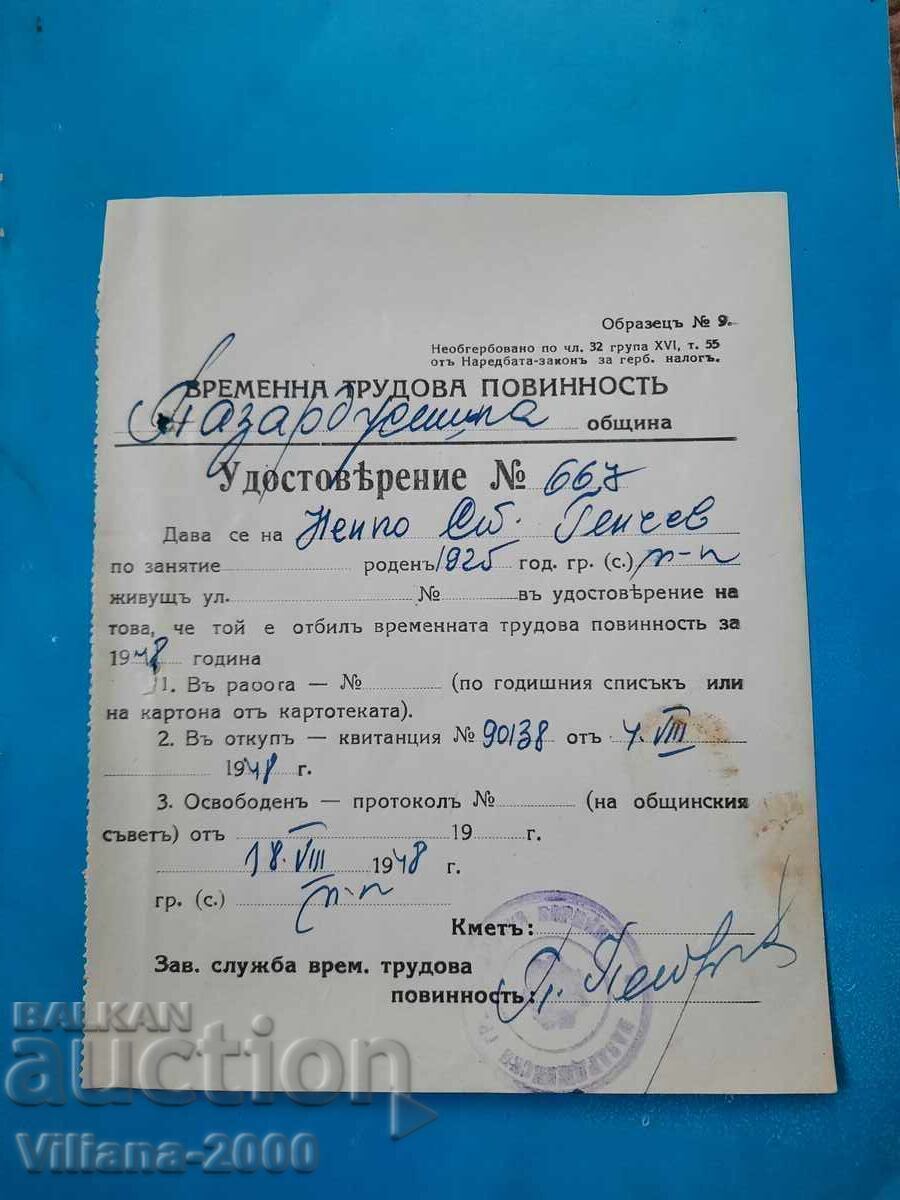 Образецъ № 9.
Необгербовано по чл. 32 група XVI, т. 55
отъ Наредбата-законъ за герб. налогъ.
ВРЕМЕННА ТРУДОВА ПОВИННОСТЬ
община
Удостовѣрение № 667
Дава се на Ненко Ст. Генчев
по занятие роденъ 1925 год. гр. (с.) п-к
живущъ ул. № въ удостовѣрение на
това, че той е отбилъ временната трудова повинность за
1948 година
1. Въ работа — № (по годишния списъкъ или
на картона отъ картотеката).
2. Въ откупъ — квитанция № 90138 отъ 7. VIII
1948 г.
3. Освободенъ — протоколъ № (на общинския
съветъ) отъ 19 г.
18. VIII 1948 г.
гр. (с.)
Кметъ:
Зав. служба врем. трудова
повинность:
BALKAN
auction
Viliana-2000